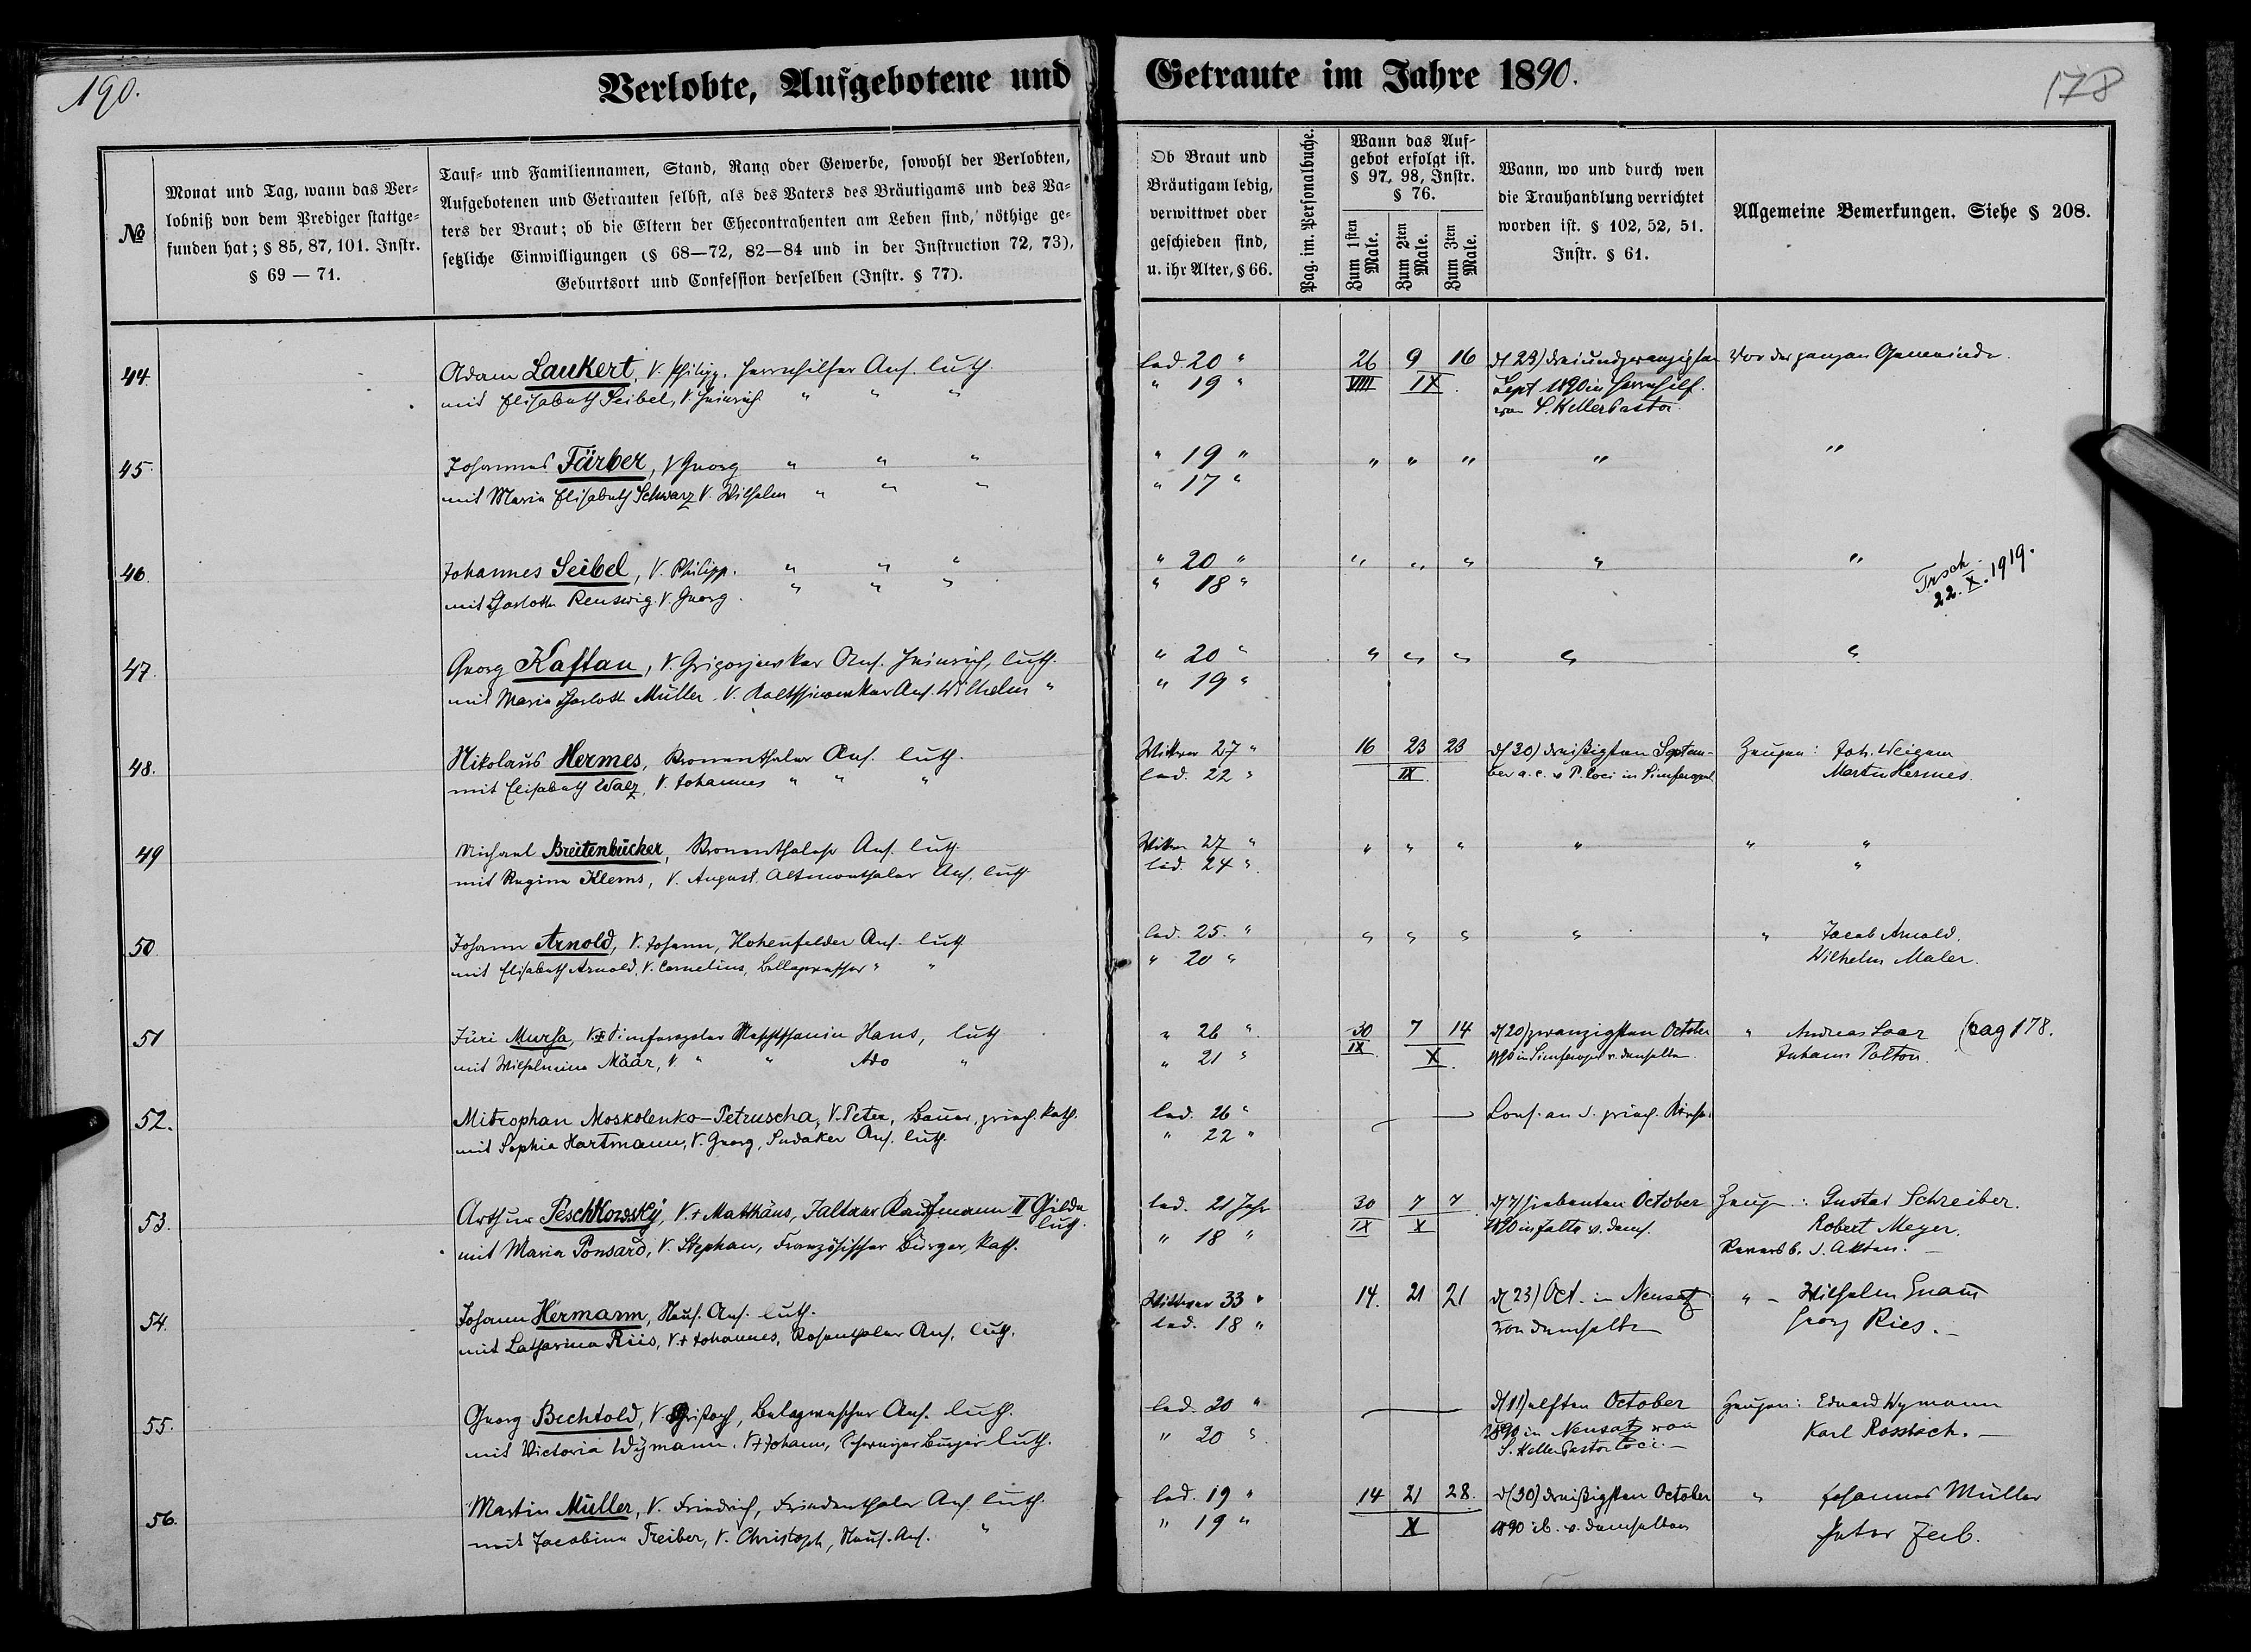 190.
178
Verlobte, Aufgebotene und Getraute im Jahre 1890.
№
Monat und Tag, wann das Ver-
lobniß von dem Prediger stattge-
funden hat; § 85, 87, 101. Instr.
§ 69 — 71.
Tauf- und Familiennamen, Stand, Rang oder Gewerbe, sowohl der Verlobten,
Aufgebotenen und Getrauten selbst, als des Vaters des Bräutigams und des Va-
ters der Braut; ob die Eltern der Ehecontrahenten am Leben sind, nöthige ge-
setzliche Einwilligungen (§ 68—72, 82—84 und in der Instruction 72, 73),
Geburtsort und Confession derselben (Instr. § 77).
Ob Braut und
Bräutigam ledig,
verwittwet oder
geschieden sind,
u. ihr Alter, § 66.
Pag. im. Personalbuche.
Wann das Auf-
gebot erfolgt ist.
§ 97, 98, Instr.
§ 76.
Zum 1sten Male.
Zum 2ten Male.
Zum 3ten Male.
Wann, wo und durch wen
die Trauhandlung verrichtet
worden ist. § 102, 52, 51.
Instr. § 61.
Allgemeine Bemerkungen. Siehe § 208.
44. Adam Laukert, V. Philipp, Herrnhilfer Ans. luth. led. 20 " 26 9 16 d (23) dreiundzwanzigsten Vor der ganzen Gemeinde.
mit Elisabeth Seibel, V. Heinrich " " " " 19 " VIII IX Sept 1890 in Herrnhilf.
von S. Keller Pastor.
45. Johannes Färber, V Georg " " " " 19 " " " " " "
mit Maria Elisabeth Schwarz V. Wilhelm " " " " 17 "
46. Johannes Seibel, V. Philipp. " " " " 20 " " " " " "
mit Charlotte Rentzwig V. Georg. " " " " 18 "
Trsch.
22. X. 1919.
47. Georg Kaftan, V. Grigorjewker Ans. Heinrich, luth. " 20 " " " " " "
mit Maria Charlotte Müller. V. Ans. Wilhelm " " 19 "
48. Nikolaus Hermes, Kronenthaler Ans. luth. Wittwer 27 " 16 23 23 d (30) dreißigsten Septem- Zeugen: Joh. Weigum
mit Elisabeth Walz, V. Johannes " " " led. 22 " IX ber a. c. v P. loci in Simferopol Martin Hermes.
49 Michael Breitenbücher, Kronenthaler Ans. luth. Wittwer 27 " " " " " " "
mit Regina Klems, V. August. Altmonthaler Ans. luth. led. 24 " "
50. Johann Arnold, V. Johann, Hohenfelder Ans. luth led. 25. " " " " " " Jacob Arnold.
mit Elisabeth Arnold, V. Cornelius, " " " 20 " Wilhelm Maler.
51 Jüri Mursa, V. + Simferopoler Meschtschanin Hans, luth " 26 " 30 7 14 d (20) zwanzigsten October " Andreas Laar (pag 178.
mit Wilhelmine Määr, V. " " Ado " " 21 " IX X. 1890 in Simferopol v. demselben. Juhann Palton.
52. Mitrophan Moskolenko-Petruscha, V. Peter, Bauer, griech. Kath. led. 26 " — Conf. an d. griech. Kirche.
mit Sophia Hartmann, V. Georg, Sudaker Ans. luth. " 22 "
53. Arthur Peschkowsky, V. + Matthäus, Jaltaer Kaufmann II Gilde led. 21 Jahr 30 7 7 d (7) siebenten October Zeug.: Gustav Schreiber.
luth.
mit Maria Ponsard, V. Stephan, Französischer Bürger, kath. " 18 " IX X 1890 in Jalta v. dems. Robert Meyer.
Revers b. d. Akten. —
54. Johann Hermann, Neus. Ans. luth. Wittwer 33 " 14. 21 21 d (23) Oct. in Neusatz " – Wilhelm
mit Catharina Riis, V. + Johannes, Rosenthaler Ans. luth. led. 18 " von demselben Georg Ries. —
55. Georg Bechtold, V. Christoph, Ans. luth. led. 20 " — d (11) elften October Zeugen: Eduard Wymann
mit Victoria Wymann. V + Johann, Schweizer Bürger luth. " 20 " 1890 in Neusatz von Karl Rossbach. —
S. Keller Pastor loci. —
56. Martin Müller, V. Friedrich, Friedenthaler Ans. luth. led. 19 " 14 21 28. d (30) dreißigsten October " Johannes Müller
mit Jacobine Treiber, V. Christoph, Neus. Ans. " " 19 " X 1890 ib. v. demselben Peter Zeeb.